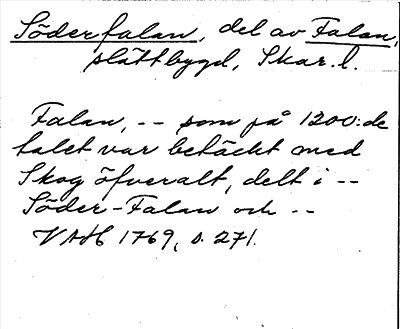 Söderfalan, del av Falan,
slättbygd, Skar. l.
Falan, -- som på 1200:de
talet var betäckt med
Skog öfveralt, delt i --
Söder-Falan och --
VAH 1769, s. 271.